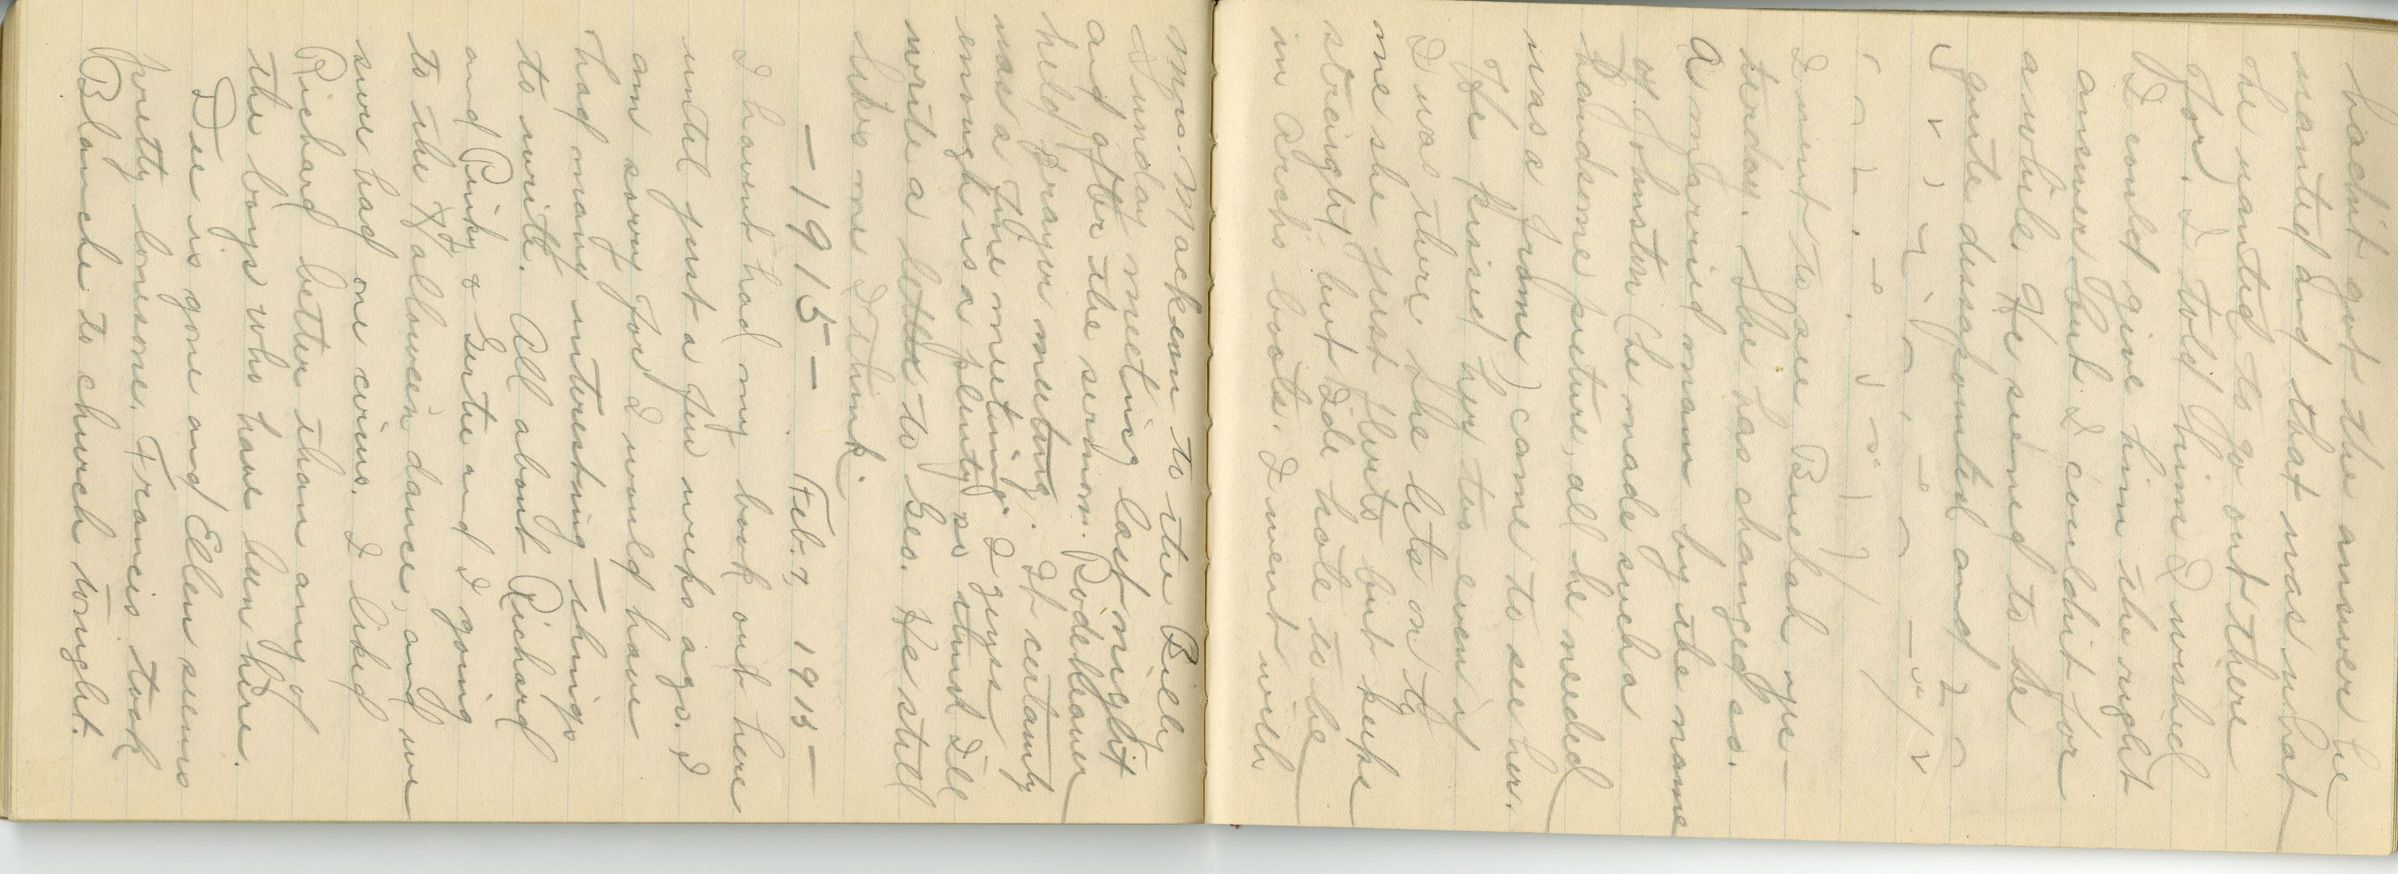 hadn't got the answer he
wanted and that was what
he wanted to go out there
for. I told him I wished
I could give him the right
answer but I couldn't for
awhile. He seemed to be
quite dissapointed and
I went to see Beulah yes-
terday. She has changed so.
A married man by the name
of Johnston (he made such a
handsome picture, all he needed
was a frame) came to see her.
He kissed her two even if
I was there. She lets on to
me she just flirts but keeps
straight, but I'de hate to be
in Archs boots. I went with
Mrs. Mackeon to the Billy
Sunday meeting last night
and after the sermon. Rodeheaver
held prayer meeting. It certainly
was a fine meeting. I guess
enough is a plenty so thind I'll
write a letter to Geo. He still
likes me I think.
- 1915 - Feb. 7, 1915 -
I havent had my book out here
until just a few weeks ago. I
am sorry for I would have
had many interesting things
to write. All about Richard
and Pinky & Gertie and I going
to the Hallowe'en dance, and we
sure had one circus. I liked
Richard better than any of
the boys who have been here.
Dee is gone and Ellen seems
pretty lonesome. Francis took
Blanche to church tonight.